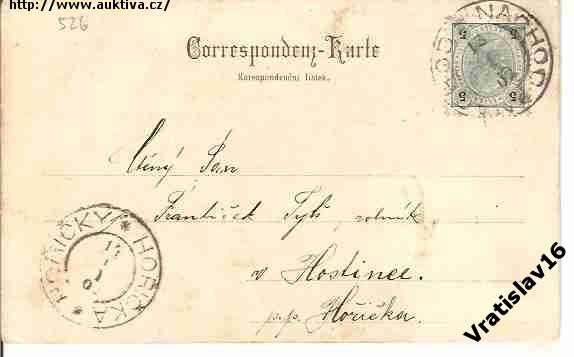 http://www.auktiva.cz/
526
Correspondenz-Karte
Korespondenční lístek.
NÁCHOD
5 5
5 5
Ctěný Pan
František Tyłš, rolník
v Hostince.
p.p. Hořička.
HOŘIČKY * HOŘIČKA *
Vratislav16